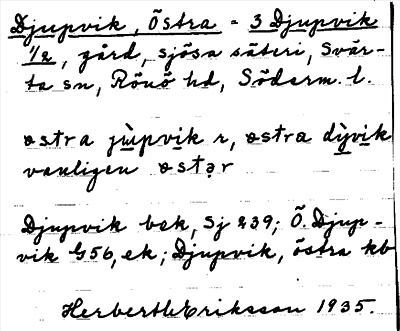 Djupvik, Östra = 3 Djupvik
1/2, gård, sjösa säteri, Svär-
ta sn, Rönö hd, Söderm. l.
østra jùpvik r, østra dỳvik
vanligen østạr
Djupvik bek, Sj 239; Ö. Djup-
vik G56, ek; Djupvik, östra kb
Herberth Eriksson 1935.